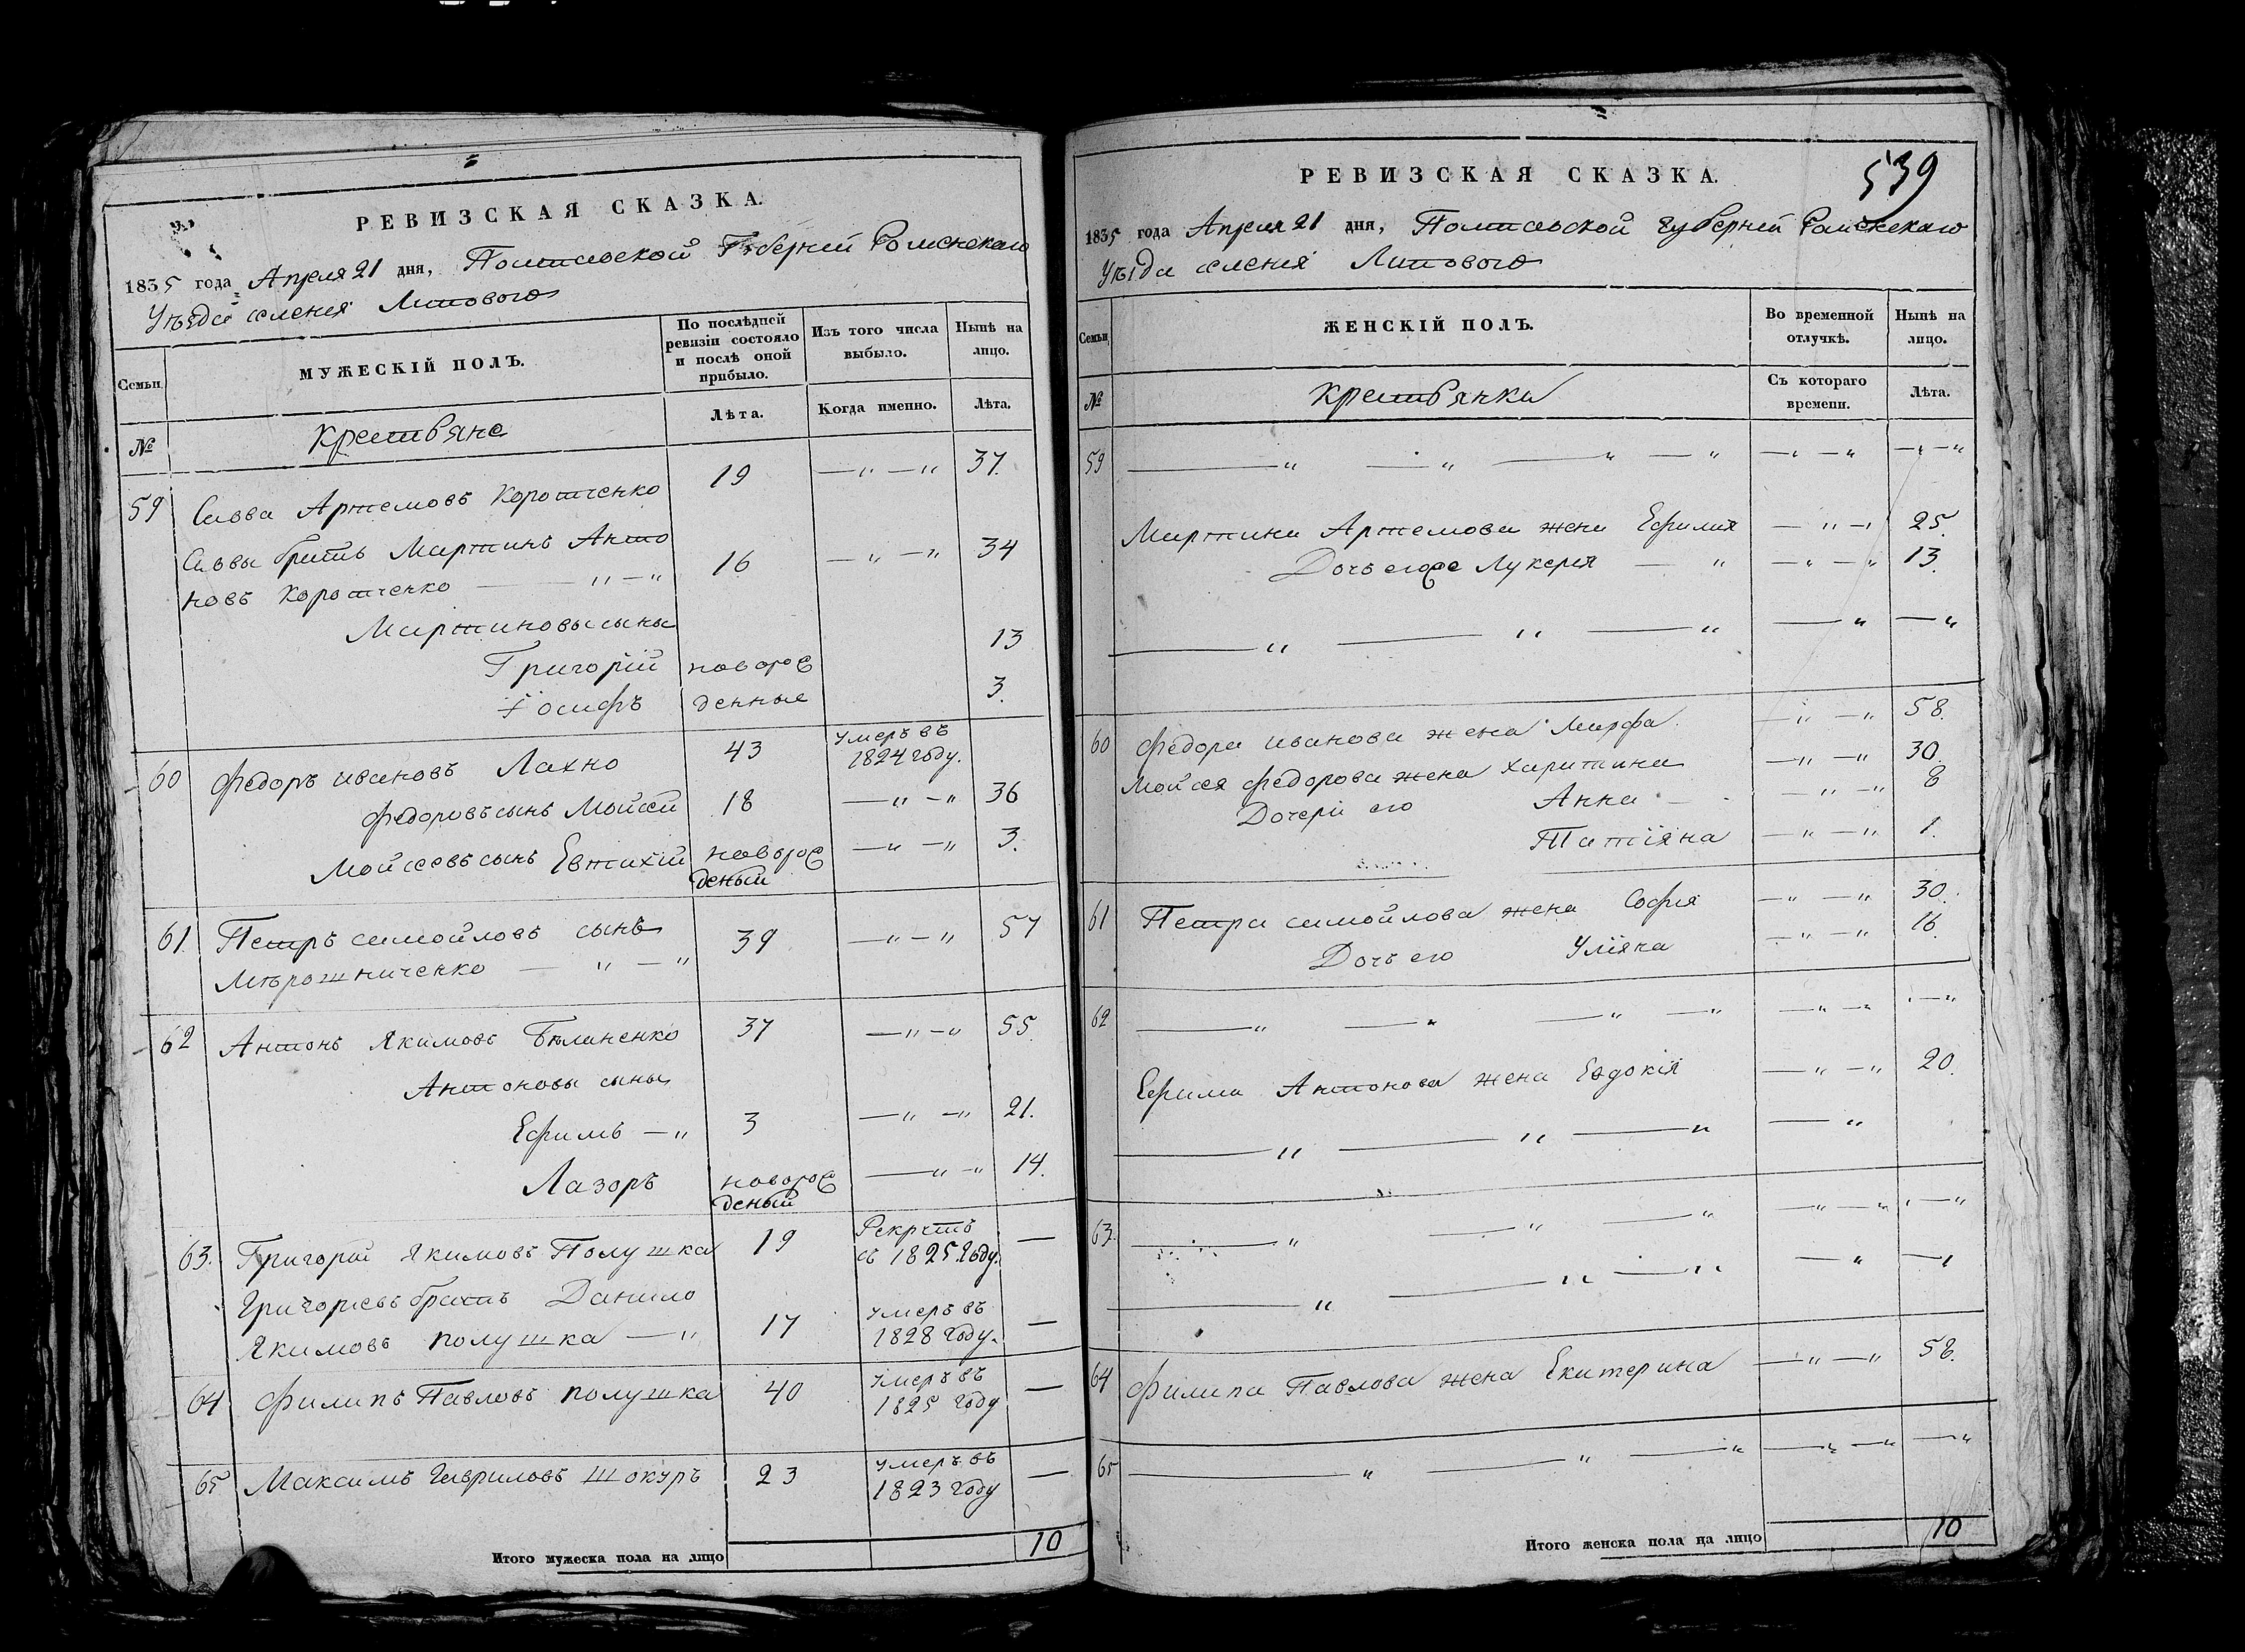 РЕВИЗСКАЯ СКАЗКА.
1835 года Апреля 21 дня, Полтавской Губерний Роменскаго
Уѣзда селения Липового
Семьи
МУЖЕСКІЙ ПОЛЪ.
По послѣдней ревизіи состояло и послѣ оной прибыло.
Изъ того числа выбыло.
Нынѣ на лицо.
№
Крестьяне
Лѣта.
Когда именно.
Лѣта.
59 Савва Артемовъ Коротченко 19 —„—„ 37.
Саввы братъ Мартинъ Анто
новъ Коротченко —„—„ 16 —„—„ 34
Мартиновы сыны
Григорій новорож 13
Іосифъ денные 3.
60 Федоръ Ивановъ Лахно 43 умеръ въ 1824 году.
Федоровъ сынъ Мойсей 18 —„—„ 36
Мойсеевъ сынъ Евтихій новорож деный —„—„ 3.
61. Петръ Самойловъ сынъ
Мѣрошниченко —„—„ 39 —„—„ 57
62 Антонъ Якимовъ Бѣлиненко 37 —„—„ 55
Антоновы сыны
Ефимъ —„ 3 —„—„ 21.
Лазоръ новорож деный —„—„ 14.
63. Григорій Якимовъ Полушка 19 Рекрутъ съ 1825 году. —
Григориевъ братъ Данило
Якимовъ полушка —„ 17 умеръ въ 1828 году. —
64 Филипъ Павловъ полушка 40 умеръ въ 1825 году —
65 Максимъ Гавриловъ Шокуръ 23 умеръ въ 1823 году —
Итого мужеска пола на лицо 10
РЕВИЗСКАЯ СКАЗКА.
539
1835 года Апреля 21 дня, Полтавской Губерніи Роменскаго
Уѣзда селения Липового
Семьи
ЖЕНСКІЙ ПОЛЪ.
Во временной отлучкѣ.
Нынѣ на лицо.
№
Крестьянки
Съ котораго времени.
Лѣта.
59 —„ —„ —„ —„ —„—„ —„—„
Мартина Артемова жена Ефимия —„—„ 25.
Дочь его же Лукерия —„ —„—„ 13.
—„ —„ —„ —„ —„
60 Федора Иванова жена Марфа —„—„ 58.
Мойсея Федорова жена Харитина —„—„ 30.
Дочери его Анна —„—„ 8
Татіяна —„—„ 1.
61 Петра Самойлова жена Софія —„—„ 30.
Дочь его Уліяна —„—„ 16.
62 —„ —„ —„ —„ —„—„ —„
Ефима Антонова жена Евдокія —„—„ 20.
—„ —„ —„ —„
63. —„ —„ —„ —„—„ —„
—„ —„ —„ —„ —„
64 Филипа Павлова жена Екатерина —„—„ 58.
65 —„ —„ —„ —„—„ —„
Итого женска пола на лицо 10